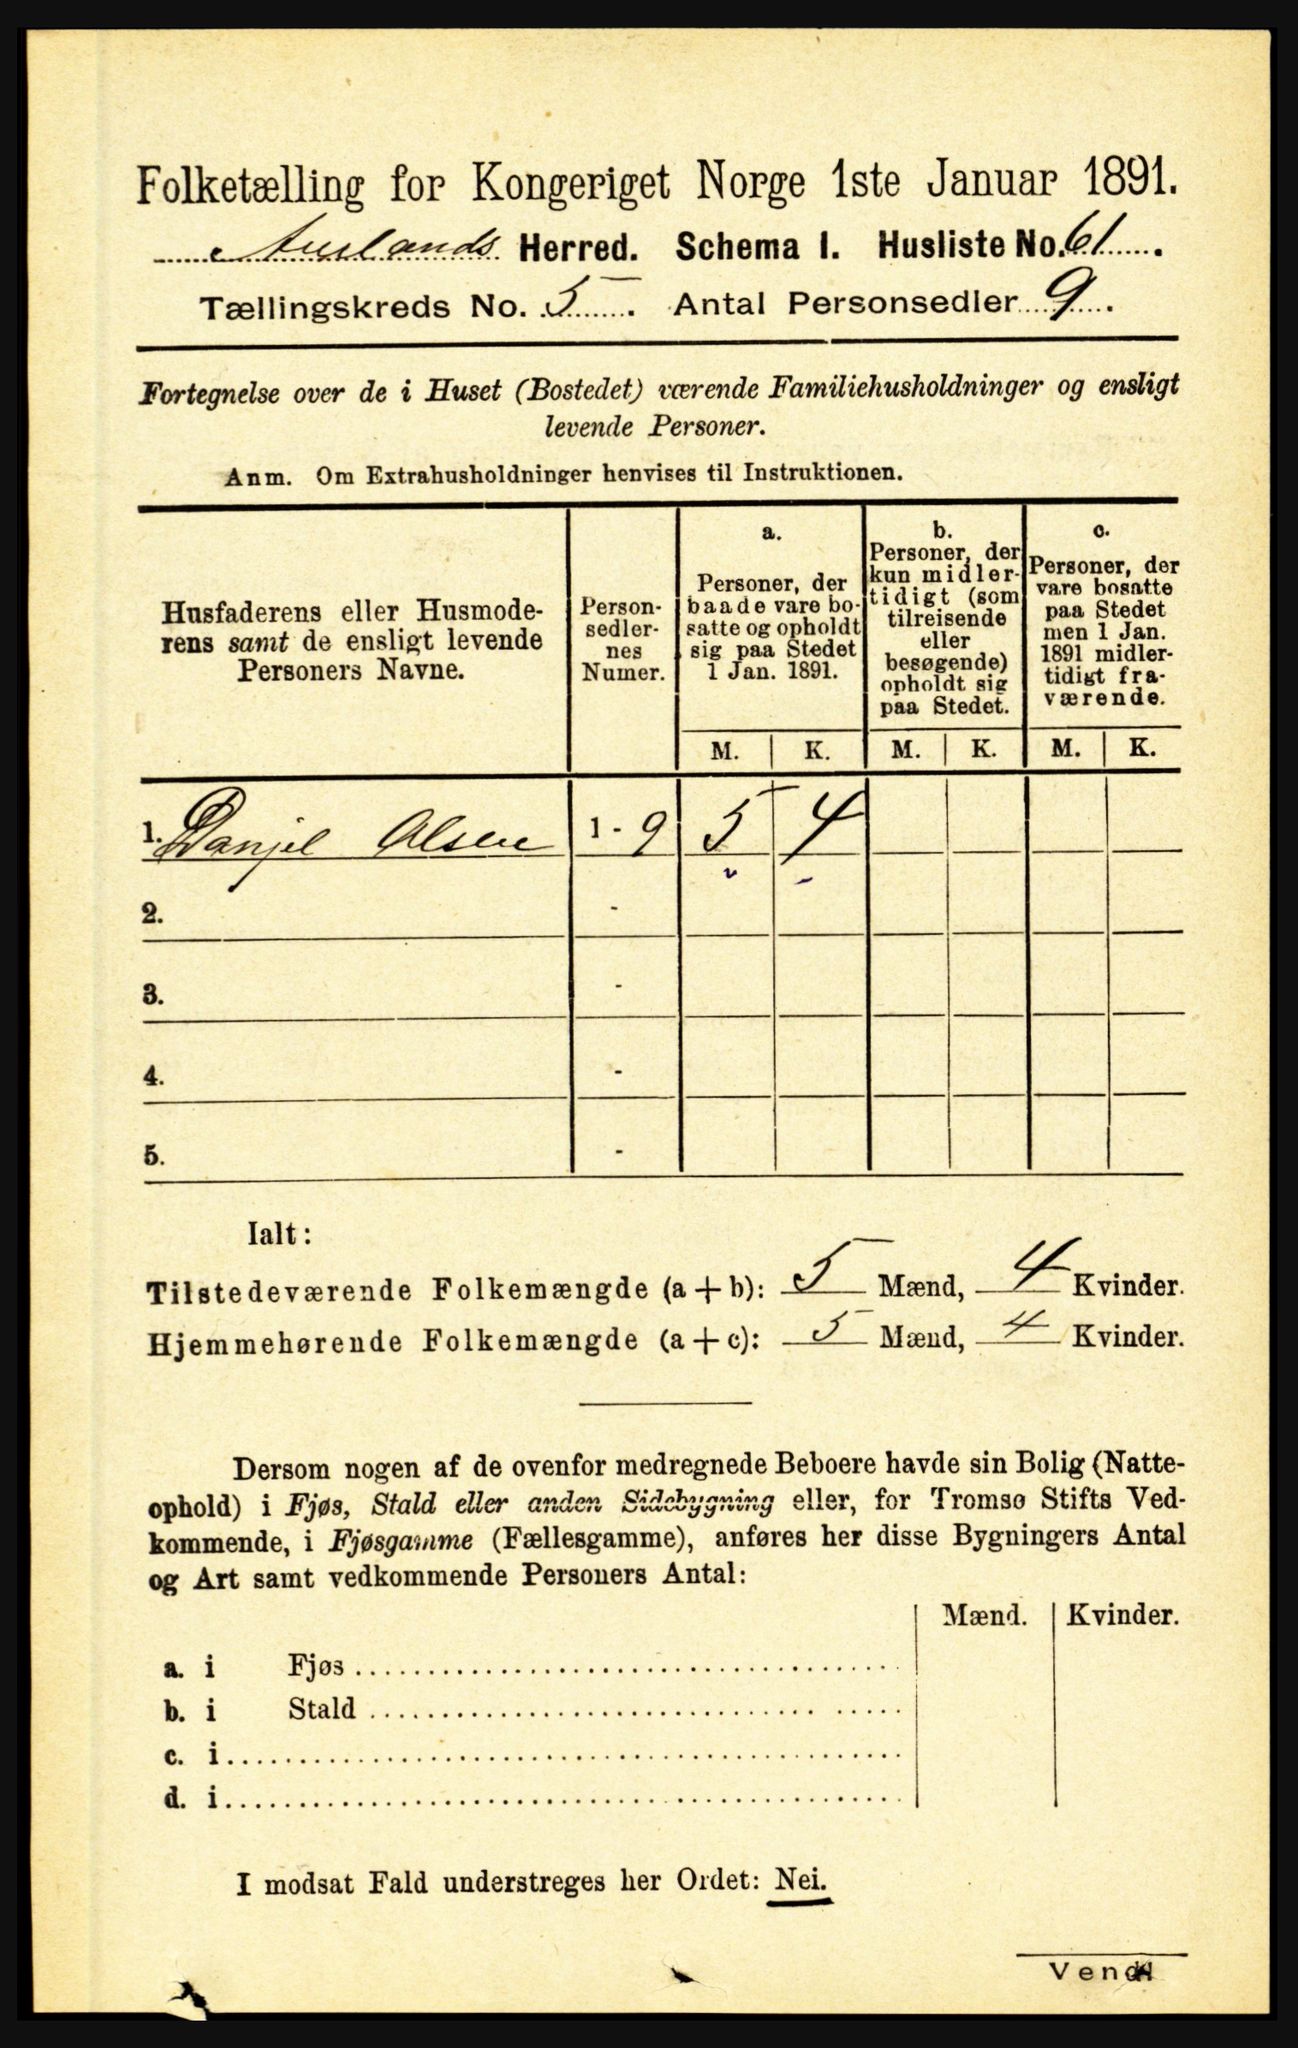 Folketælling for Kongeriget Norge 1ste Januar 1891.
Aurlands Herred. Schema I. Husliste No. 61.
Tællingskreds No. 5. Antal Personsedler 9.
Fortegnelse over de i Huset (Bostedet) værende Familiehusholdninger og ensligt
levende Personer.
Anm. Om Extrahusholdninger henvises til Instruktionen.
Husfaderens eller Husmode-
rens samt de ensligt levende
Personers Navne.
Person-
sedler-
nes
Numer.
a.
Personer, der
baade vare bo-
satte og opholdt
sig paa Stedet
1 Jan. 1891.
b.
Personer, der
kun midler-
tidigt (som
tilreisende
eller
besøgende)
opholdt sig
paa Stedet.
c.
Personer, der
vare bosatte
paa Stedet
men 1 Jan.
1891 midler-
tidigt fra-
værende.
M. K. M. K. M. K.
1. Danjel Olsen 1 - 9 5 4
2. -
3. -
4. -
5. -
Ialt:
Tilstedeværende Folkemængde (a + b): 5 Mænd, 4 Kvinder.
Hjemmehørende Folkemængde (a + c): 5 Mænd, 4 Kvinder.
Dersom nogen af de ovenfor medregnede Beboere havde sin Bolig (Natte-
ophold) i Fjøs, Stald eller anden Sidebygning eller, for Tromsø Stifts Ved-
kommende, i Fjøsgamme (Fællesgamme), anføres her disse Bygningers Antal
og Art samt vedkommende Personers Antal:
Mænd. Kvinder.
a. i Fjøs
b. i Stald
c. i
d. i
I modsat Fald understreges her Ordet: Nei.
Vend!